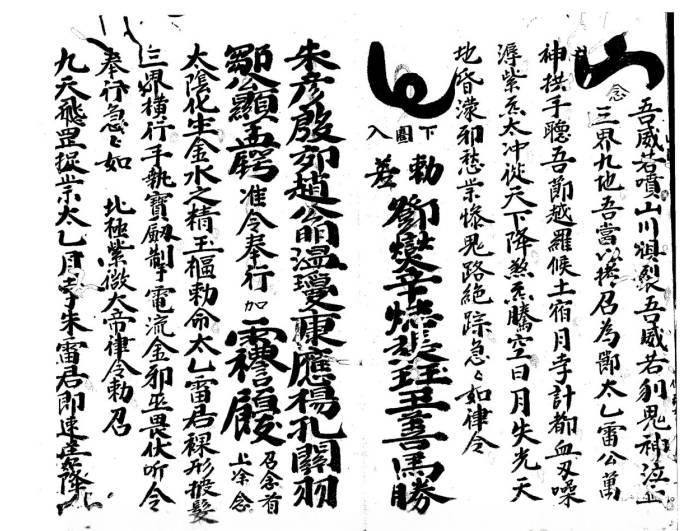 吾威若噴山川俱裂吾威若列鬼神泣
念
三界九地吾當以召為鄷太乙雷公萬
神拱手聽吾節越羅候土宿月孛計都血刃噪
潯紫炁太冲從天下降煞炁騰空日月失光天
地昏濛邪愁祟慘鬼路絕踪急々如律令
下圓入
勅差 鄧燮辛張珏王善馬勝
朱彥殷郊趙公明溫瓊康應楊孔關羽
鄒顯孟鍔 准令奉行加 召念首上念
太陰化生金水之精玉樞勅命太乙雷君裸形披髮
三界橫行手執寶劔掣電流金邪巫畏伏听令
奉行急々如 北極紫微大帝律令勅召
九天飛罡捉祟太乙月孛朱雷君即速降